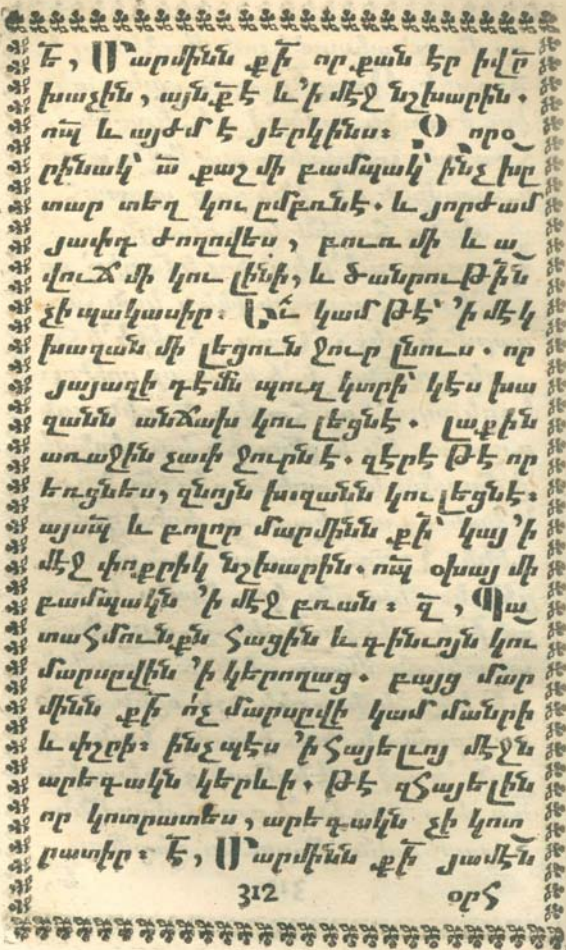 Ե̅, Մարմինն քի̅ որ քան էր իվր̅
խաչին, այնք̅ է և ՚ի մէջ նշխարին.
ոպ̅ և այժմ է յերկինս։ Օ որօ_
րինակ՝ ա̅ քաշ մի բամպակ՝ ի̅նչ խը
տար տեղ կու ըմբռնէ. և յորժամ
յափդ ժողովես, բուռ մի և ա_
վուՃ մի կու լինի, և ծանրուԹի̅ն
չի պակասիր։ կամ Թէ՝ ՚ի մէկ
խաղան մի լեցուն ջուր լնուս. որ
յայաղի դէմն պուղ կտրի՝ կէս խա
զանն անՃախ կու լեցնէ. լաքին
առաջին չափ ջուրն է. զէրէ Թէ որ
եռցնես, զնոյն խզանն կու լեցնէ։
այսպ̅ և բոլոր մարմինն քի̅՝ կայ ՚ի
մէջ փոքրիկ նշխարին. ոպ̅ օխայ մի
բամպակն ՚ի մէջ բռան։ զ̅, Պա_
տահմունքն հացին և գինւոյն կու
մարսըվին ՚ի կերողաց. բայց մար
մինն քի̅ ո՛չ մարսըվի կամ մանրի
և փշրի։ ինչպէս ՚ի հայելւոյ մէջն
արեգակն կերևի. Թէ զհայելին
որ կոտրատես, արեգակն չի կոտ_
րատիր։ է̅, Մարմինն քի̅ յամէն
312 օրհ